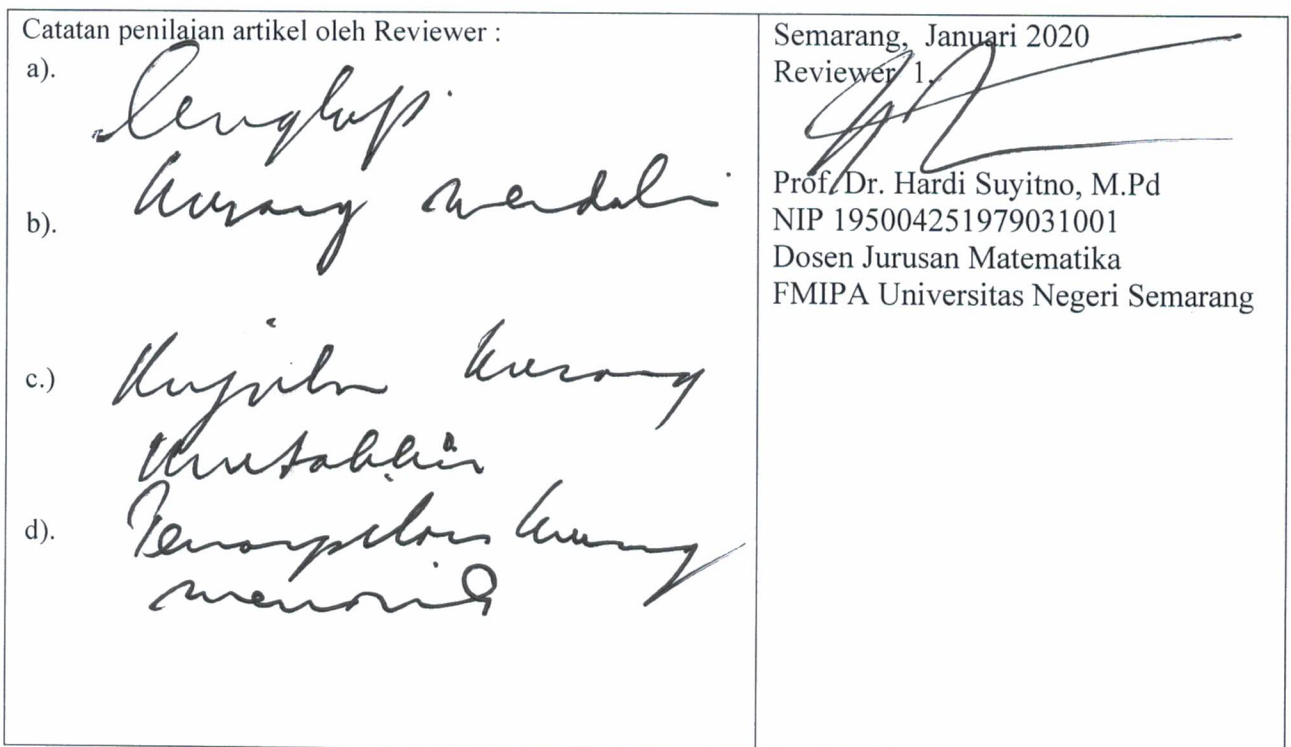 Catatan penilaian artikel oleh Reviewer :
a). Lengkap
b). kurang mendalam
c.) kurang
d). Penampilan kurang
menarik
Semarang, Januari 2020
Reviewer 1,
Prof. Dr. Hardi Suyitno, M.Pd
NIP 195004251979031001
Dosen Jurusan Matematika
FMIPA Universitas Negeri Semarang